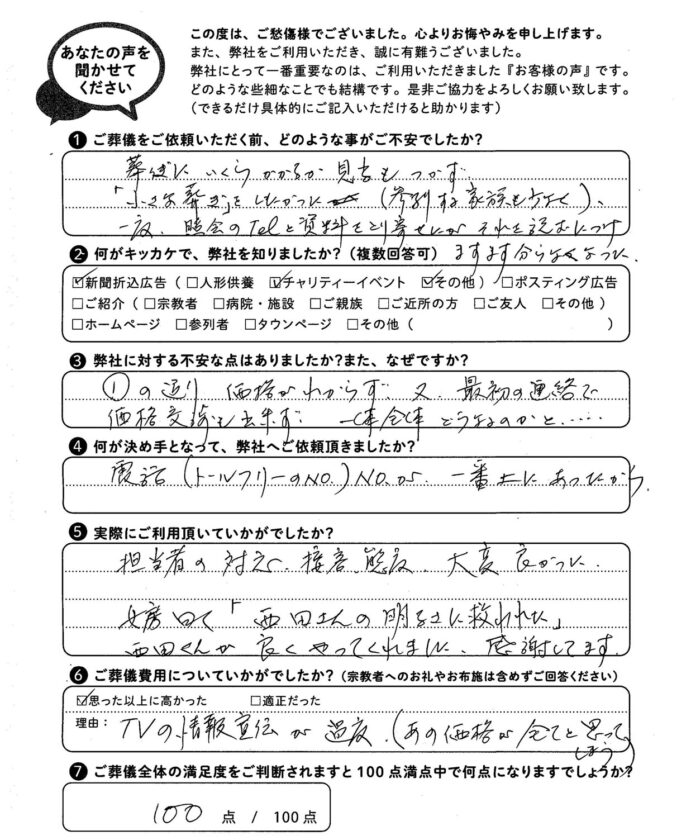 あなたの声を
聞かせて
ください
この度は、ご愁傷様でございました。心よりお悔やみを申し上げます。
また、弊社をご利用いただき、誠に有難うございました。
弊社にとって一番重要なのは、ご利用いただきました『お客様の声』です。
どのような些細なことでも結構です。是非ご協力をよろしくお願い致します。
（できるだけ具体的にご記入いただけると助かります）
❶ ご葬儀をご依頼いただく前、どのような事がご不安でしたか？
葬儀に いくら かかるか 見当も つかず、
「小さな葬ぎ」をしたかった (参列する家族も少なく)、
一度、照会のTelと資料をとり寄せたが それを読むにつけ
ますます分らなくなった。
❷ 何がキッカケで、弊社を知りましたか？（複数回答可）
☑新聞折込広告（□人形供養 ☑チャリティーイベント ☑その他）□ポスティング広告
□ご紹介（□宗教者 □病院・施設 □ご親族 □ご近所の方 □ご友人 □その他）
□ホームページ □参列者 □タウンページ □その他（ ）
❸ 弊社に対する不安な点はありましたか？また、なぜですか？
①の通り 価格がわからず、又、最初の連絡で
価格交渉も出来ず、一体全体 どうなるのかと.....
❹ 何が決め手となって、弊社へご依頼頂きましたか？
電話 (トールフリーのNO.) NO.が、一番上にあったから、
❺ 実際にご利用頂いていかがでしたか？
担当者の 対応、接客、態度、大変 良かった、
女房曰て「西田さんの明るさに救われた」
西田くんが 良く やってくれました、感謝してます、
❻ ご葬儀費用についていかがでしたか？（宗教者へのお礼やお布施は含めずご回答ください）
☑思った以上に高かった □適正だった
理由： TVの情報宣伝が 過度、(あの価格が 全てと 思って
しまう)
❼ ご葬儀全体の満足度をご判断されますと100点満点中で何点になりますでしょうか？
100 点 / 100点